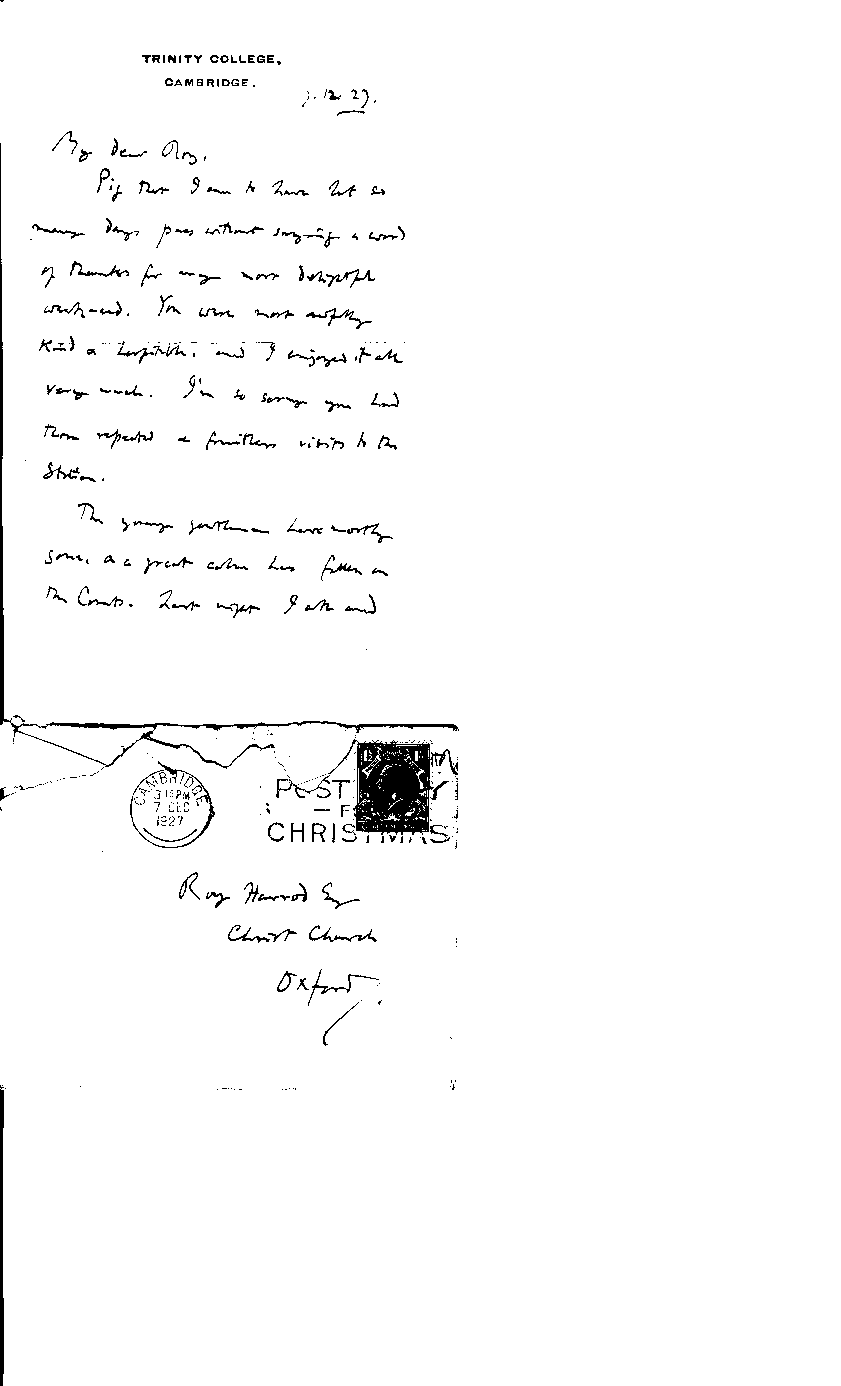 TRINITY COLLEGE,
CAMBRIDGE.
7.12.27.
My dear Roy,
Pig that I am to have let so
many days pass without saying a word
of thanks for my most delightful
week-end. You were most awfully
kind & hospitable, and I enjoyed it all
very much. I'm so sorry you had
those repeated & fruitless visits to the
Station.
The young gentlemen have mostly
gone, & a great calm has fallen on
the Courts. Last night I and
CAMBRIDGE
3 15 PM
7 DEC
1927
POST
— F
CHRISTMAS
Roy Harrod Esq
Christ Church
Oxford.